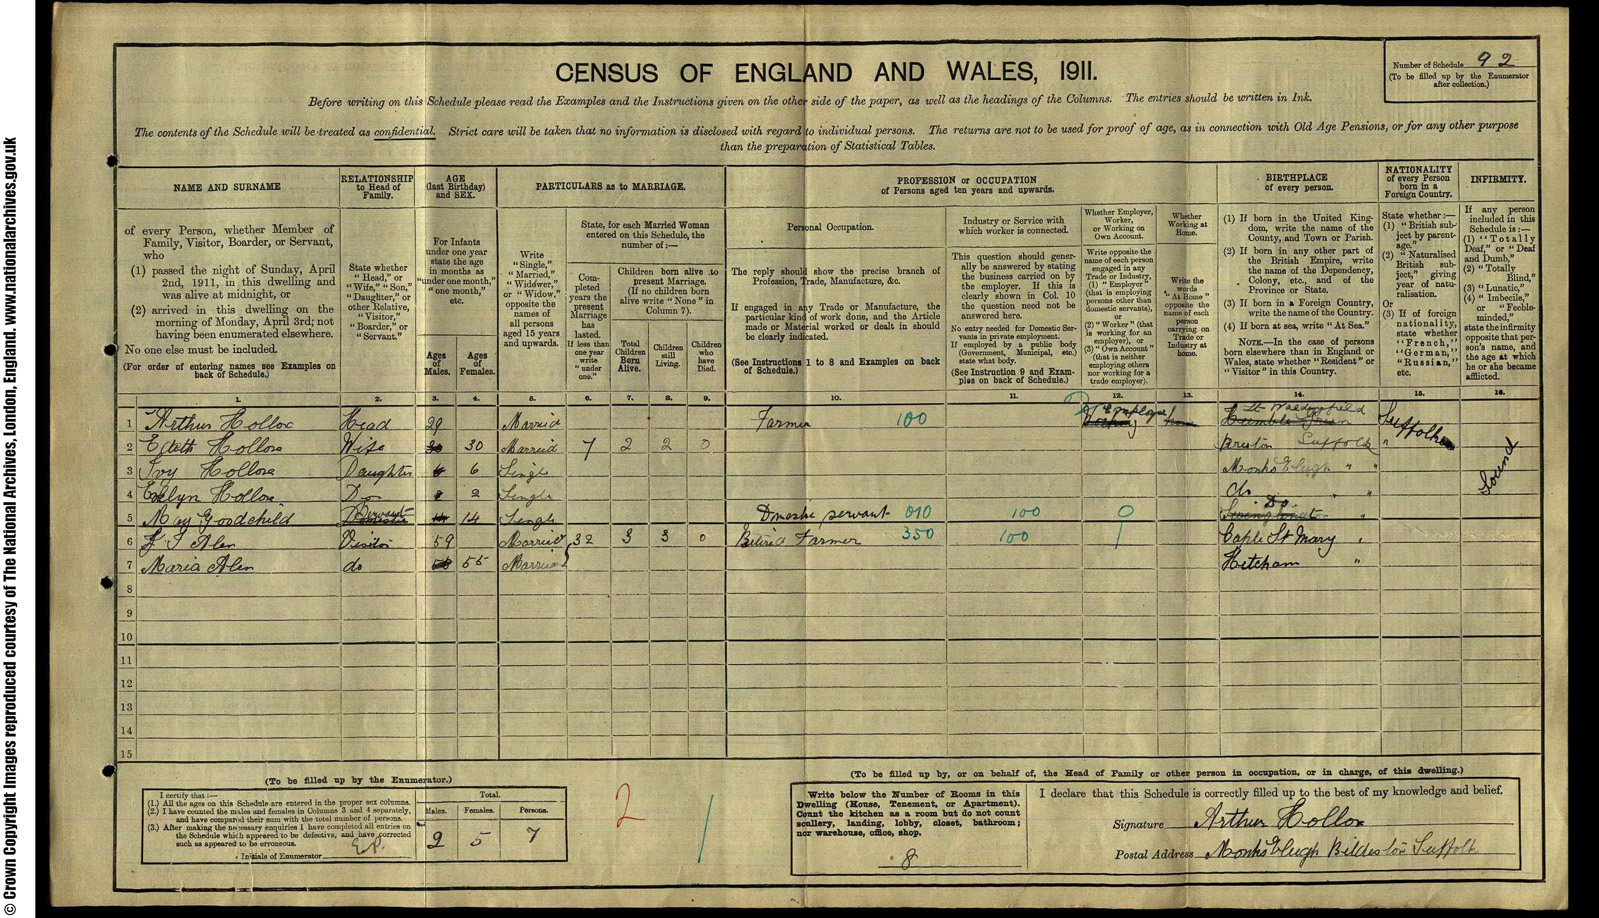 © Crown Copyright Images reproduced courtesy of The National Archives, London, England. www.nationalarchives.gov.uk
CENSUS OF ENGLAND AND WALES, 1911.
Number of Schedule 92
(To be filled up by the Enumerator after collection.)
Before writing on this Schedule please read the Examples and the Instructions given on the other side of the paper, as well as the headings of the Columns. The entries should be written in Ink.
The contents of the Schedule will be treated as confidential. Strict care will be taken that no information is disclosed with regard to individual persons. The returns are not to be used for proof of age, as in connection with Old Age Pensions, or for any other purpose
than the preparation of Statistical Tables.
NAME AND SURNAME
of every Person, whether Member of
Family, Visitor, Boarder, or Servant,
who
(1) passed the night of Sunday, April
2nd, 1911, in this dwelling and
was alive at midnight, or
(2) arrived in this dwelling on the
morning of Monday, April 3rd; not
having been enumerated elsewhere.
No one else must be included.
(For order of entering names see Examples on
back of Schedule.)
RELATIONSHIP
to Head of
Family.
State whether
"Head," or
"Wife," "Son,"
"Daughter," or
other Relative,
"Visitor,"
"Boarder," or
"Servant."
AGE
(last Birthday)
and SEX.
For Infants
under one year
state the age
in months as
"under one month,"
"one month,"
etc.
Ages
of
Males.
Ages
of
Females.
PARTICULARS as to MARRIAGE.
Write
"Single,"
"Married,"
"Widower,"
or "Widow,"
opposite the
names of
all persons
aged 15 years
and upwards.
State, for each Married Woman
entered on this Schedule, the
number of:—
Completed
years the
present
Marriage
has
lasted.
If less than
one year
write
"under
one."
Children born alive to
present Marriage.
(If no children born
alive write "None" in
Column 7).
Total
Children
Born
Alive.
Children
still
Living.
Children
who
have
Died.
PROFESSION or OCCUPATION
of Persons aged ten years and upwards.
Personal Occupation.
The reply should show the precise branch of
Profession, Trade, Manufacture, &c.
If engaged in any Trade or Manufacture, the
particular kind of work done, and the Article
made or Material worked or dealt in should
be clearly indicated.
(See Instructions 1 to 8 and Examples on back
of Schedule.)
Industry or Service with
which worker is connected.
This question should generally
be answered by stating
the business carried on by
the employer. If this is
clearly shown in Col. 10
the question need not be
answered here.
No entry needed for Domestic Servants
in private employment.
If employed by a public body
(Government, Municipal, etc.)
state what body.
(See Instruction 9 and Examples
on back of Schedule.)
Whether Employer,
Worker,
or Working on
Own Account.
Write opposite the
name of each person
engaged in any
Trade or Industry,
(1) "Employer"
(that is employing
persons other than
domestic servants),
or
(2) "Worker" (that
is working for an
employer), or
(3) "Own Account"
(that is neither
employing others
nor working for a
trade employer).
Whether
Working at
Home.
Write the
words
"At Home"
opposite the
name of each
person
carrying on
Trade or
Industry at
home.
BIRTHPLACE
of every person.
(1) If born in the United Kingdom,
write the name of the
County, and Town or Parish.
(2) If born in any other part of
the British Empire, write
the name of the Dependency,
Colony, etc., and of the
Province or State.
(3) If born in a Foreign Country,
write the name of the Country.
(4) If born at sea, write "At Sea."
NOTE.—In the case of persons
born elsewhere than in England or
Wales, state whether "Resident" or
"Visitor" in this Country.
NATIONALITY
of every Person
born in a
Foreign Country.
State whether:—
(1) "British subject
by parentage."
(2) "Naturalised
British subject,"
giving
year of naturalisation.
Or
(3) If of foreign
nationality,
state whether
"French,"
"German,"
"Russian,"
etc.
INFIRMITY.
If any person
included in this
Schedule is:—
(1) "Totally
Deaf," or "Deaf
and Dumb,"
(2) "Totally
Blind,"
(3) "Lunatic,"
(4) "Imbecile,"
or "Feeble-minded,"
state the infirmity
opposite that person's
name, and
the age at which
he or she became
afflicted.
1. 2. 3. 4. 5. 6. 7. 8. 9. 10. 11. 12. 13. 14. 15. 16.
1 Arthur Hollox Head 29 Married Farmer 100 Employer home Suffolk
2 Hollox Wife 30 Married 7 2 2 0 Suffolk "
3 Ivy Hollox Daughter 6 Single Monks Eleigh " "
4 Evelyn Hollox Do 2 Single do " "
5 May Goodchild Servant 14 Single Domestic servant 010 100 0 Do.
6 Visitor 59 Married 32 3 3 0 Farmer 350 100 1 Caple St Mary "
7 Maria do 55 Married Hitcham "
Sound
8
9
10
11
12
13
14
15
(To be filled up by the Enumerator.)
I certify that:—
(1.) All the ages on this Schedule are entered in the proper sex columns.
(2.) I have counted the males and females in Columns 3 and 4 separately,
and have compared their sum with the total number of persons.
(3.) After making the necessary enquiries I have completed all entries on
the Schedule which appeared to be defective, and have corrected
such as appeared to be erroneous.
Initials of Enumerator E.P.
Total.
Males. Females. Persons.
2 5 7
2
1
(To be filled up by, or on behalf of, the Head of Family or other person in occupation, or in charge, of this dwelling.)
Write below the Number of Rooms in this
Dwelling (House, Tenement, or Apartment).
Count the kitchen as a room but do not count
scullery, landing, lobby, closet, bathroom;
nor warehouse, office, shop.
8
I declare that this Schedule is correctly filled up to the best of my knowledge and belief.
Signature Arthur Hollox
Postal Address Monks Eleigh Bildeston Suffolk